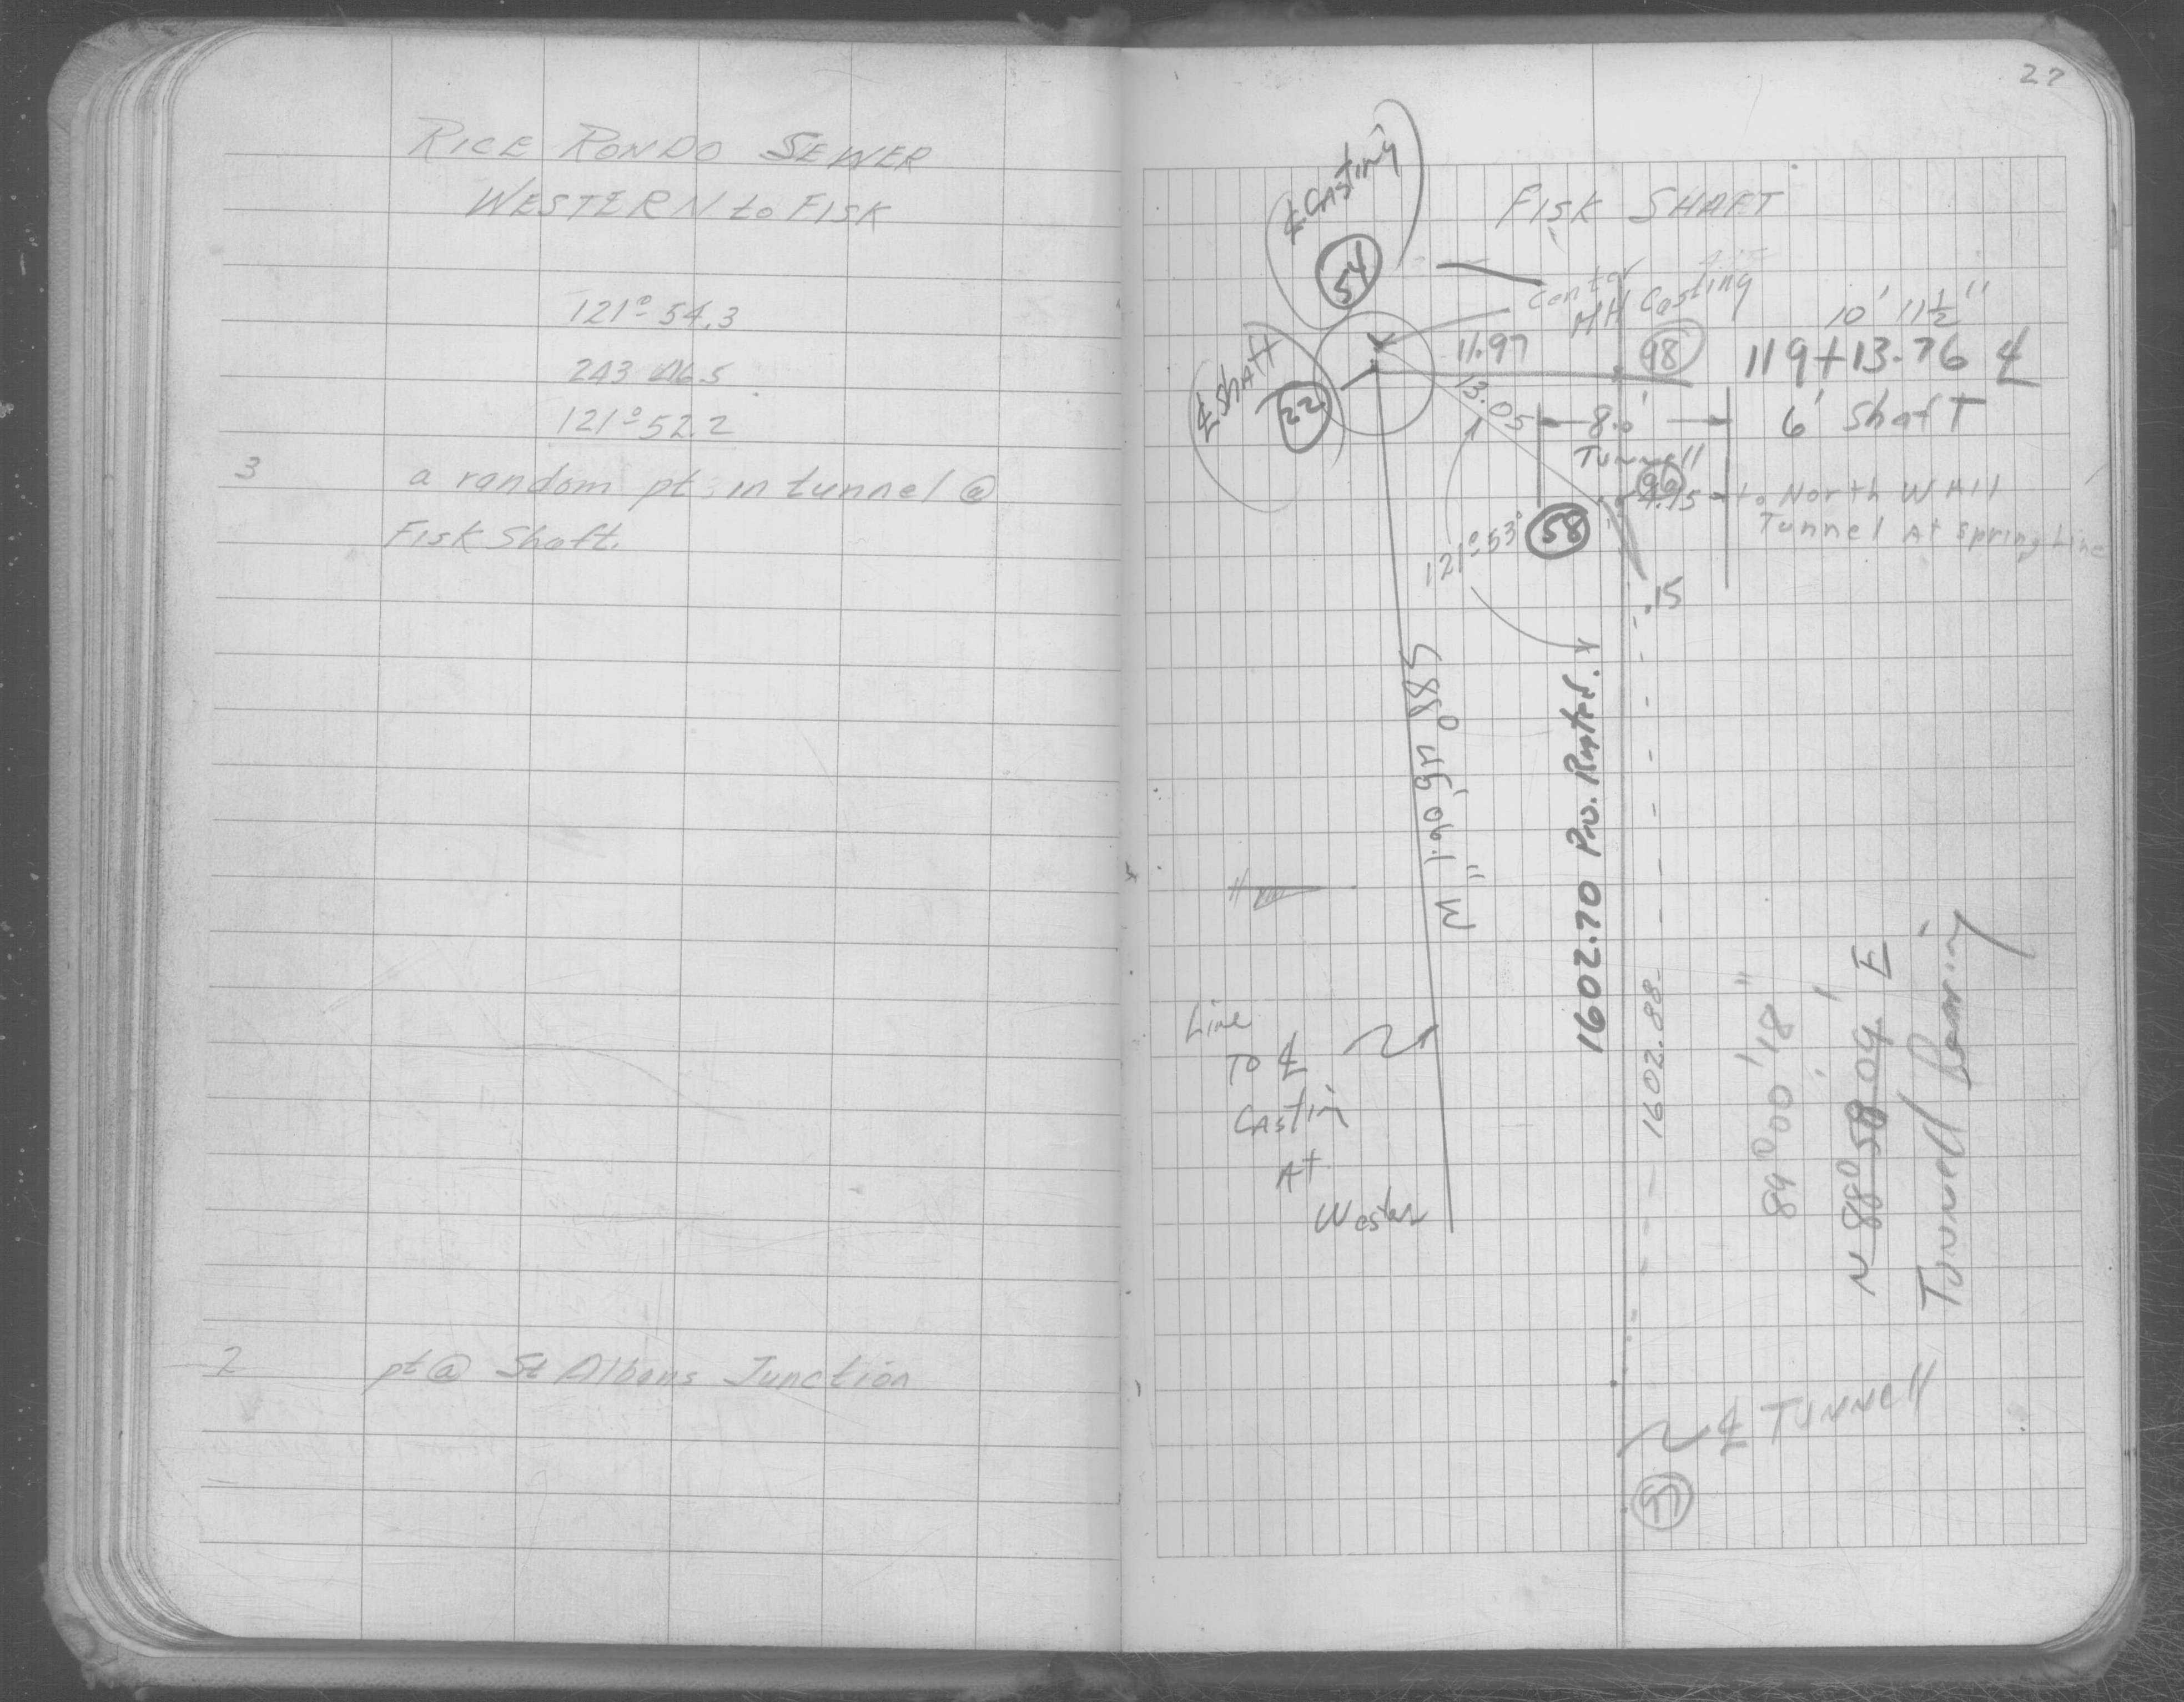 RICE RONDO SEWER
WESTERN to FISK
121° 54.3
243 46.5
121° 52.2
3 a random pt. in tunnel @
Fisk Shaft.
2 pt @ St Albans Junction
27
FISK SHAFT
℄ Casting
54
Center
MH Casting
10' 11½"
11.97
98
119+13.76 ℄
℄ Shaft
22
13.05
8.0'
6' Shaft
Tunnell
96
4.15 to North Wall
Tunnel At Spring Line
58
121° 53'
.15
S88° 45' 06.1" W
1602.70 Pro. Rated.
1602.88
89° 00' 18"
N 88° 58' 04" E
Tunnell Bearing
Line
To ℄
Castin
At
Western
℄ Tunnell
97